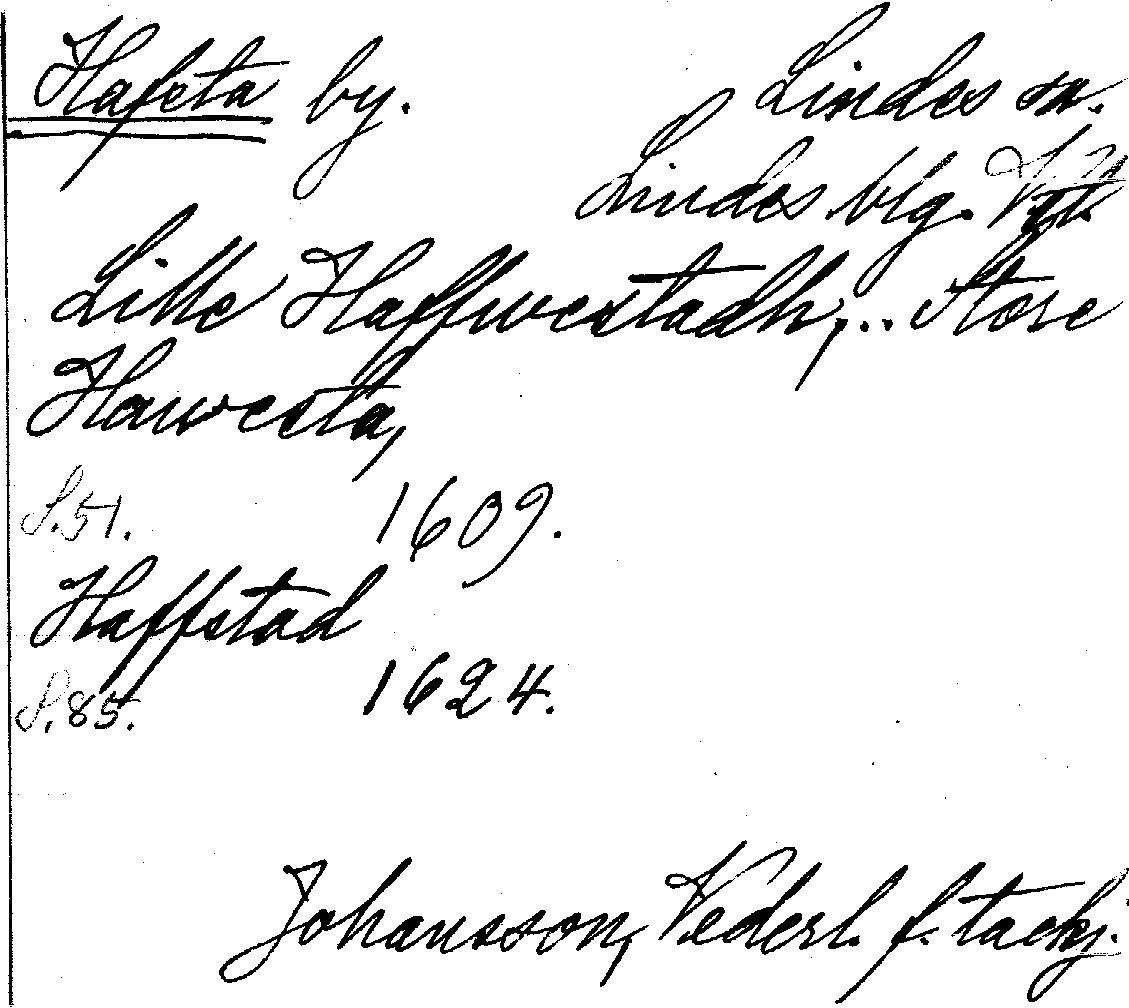 Hafsta by. Lindes sn.
Lindes blg.
Lille Haffwestadh,.. Store
Hawesta,
S.51. 1609.
Haffstad
S.85. 1624.
Johansson, Vederl. f. tackj.